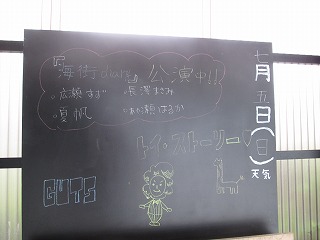 『海街diary』公演中!!
・広瀬すず ・長澤まさみ
・夏帆 ・あや瀬はるか
トイ・ストーリー
GUTS
七月五日(日)
天気